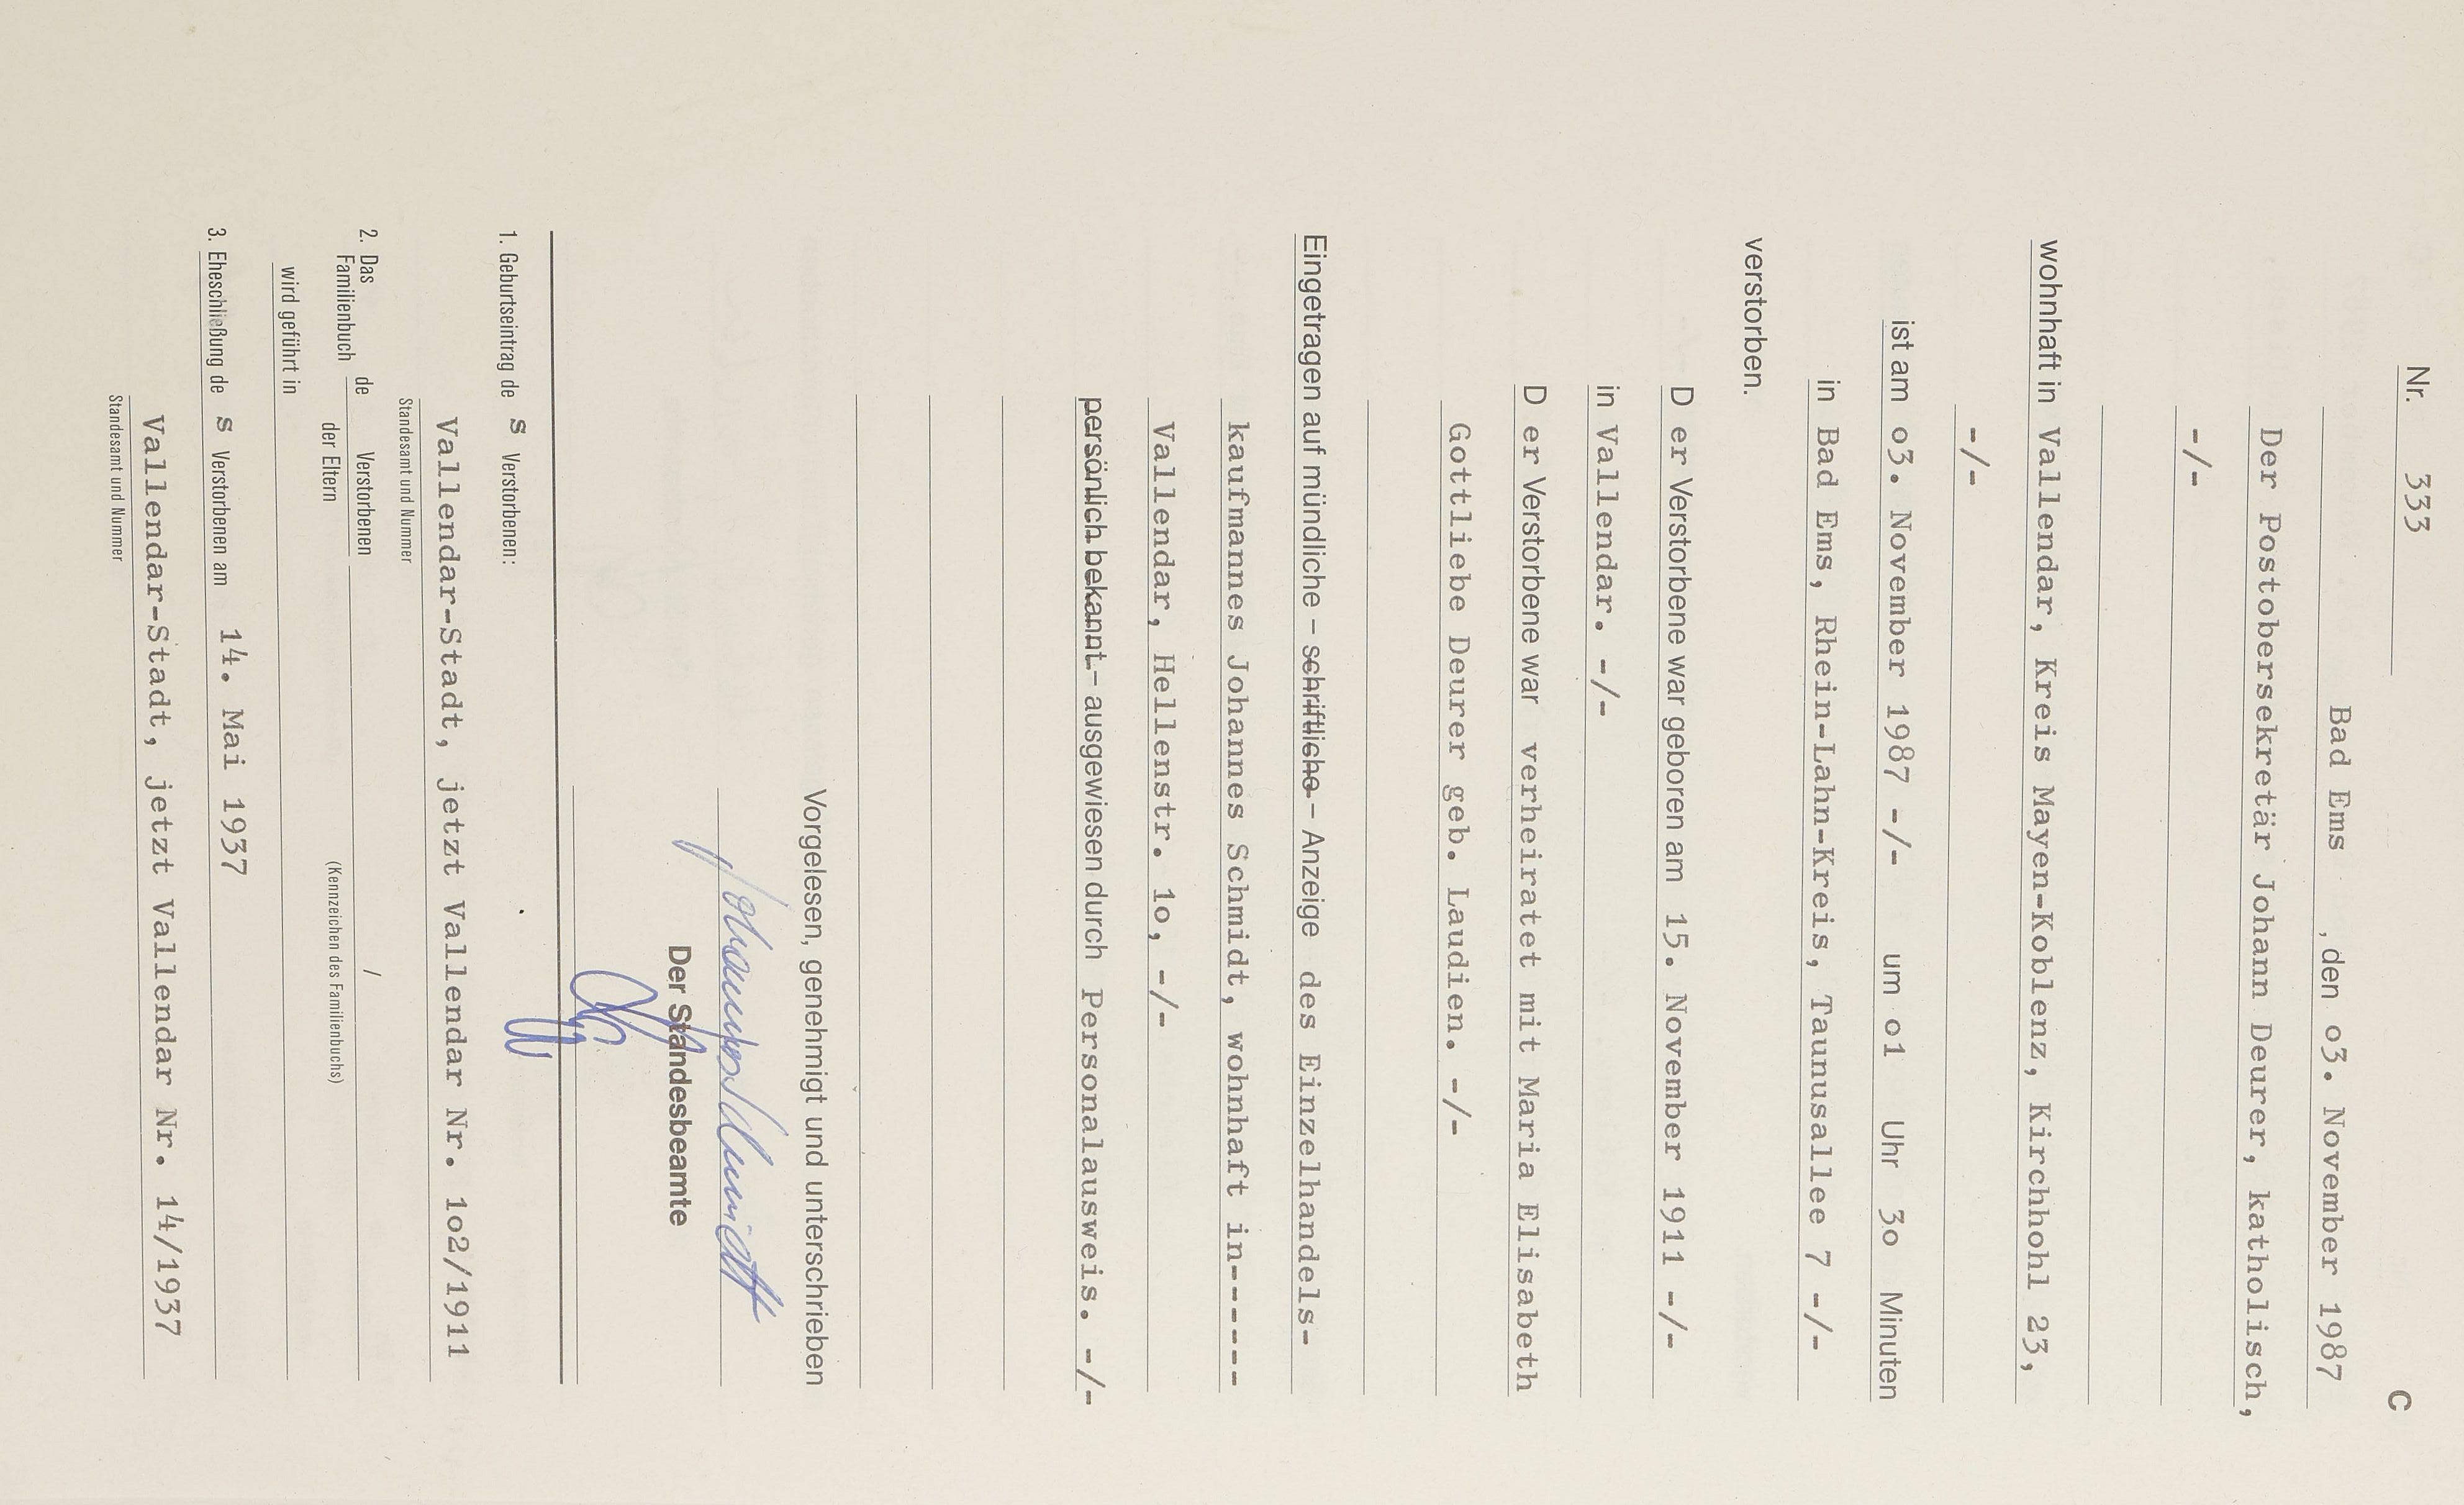 C
Nr. 333
Bad Ems , den o3. November 1987
Der Postobersekretär Johann Deurer, katholisch,
-/-
wohnhaft in Vallendar, Kreis Mayen-Koblenz, Kirchhohl 23,
-/-
ist am o3. November 1987 -/- um o1 Uhr 3o Minuten
in Bad Ems, Rhein-Lahn-Kreis, Taunusallee 7 -/-
verstorben.
D er Verstorbene war geboren am 15. November 1911 -/-
in Vallendar. -/-
D er Verstorbene war verheiratet mit Maria Elisabeth
Gottliebe Deurer geb. Laudien. -/-
Eingetragen auf mündliche – schriftliche – Anzeige des Einzelhandels-
kaufmannes Johannes Schmidt, wohnhaft in-------
Vallendar, Hellenstr. 1o, -/-
persönlich bekannt – ausgewiesen durch Personalausweis. -/-
Vorgelesen, genehmigt und unterschrieben
Johannes Schmidt
Der Standesbeamte
1. Geburtseintrag de s Verstorbenen:
Vallendar-Stadt, jetzt Vallendar Nr. 1o2/1911
Standesamt und Nummer
2. Das Familienbuch de Verstorbenen /
der Eltern (Kennzeichen des Familienbuchs)
wird geführt in
3. Eheschließung de s Verstorbenen am 14. Mai 1937
Vallendar-Stadt, jetzt Vallendar Nr. 14/1937
Standesamt und Nummer